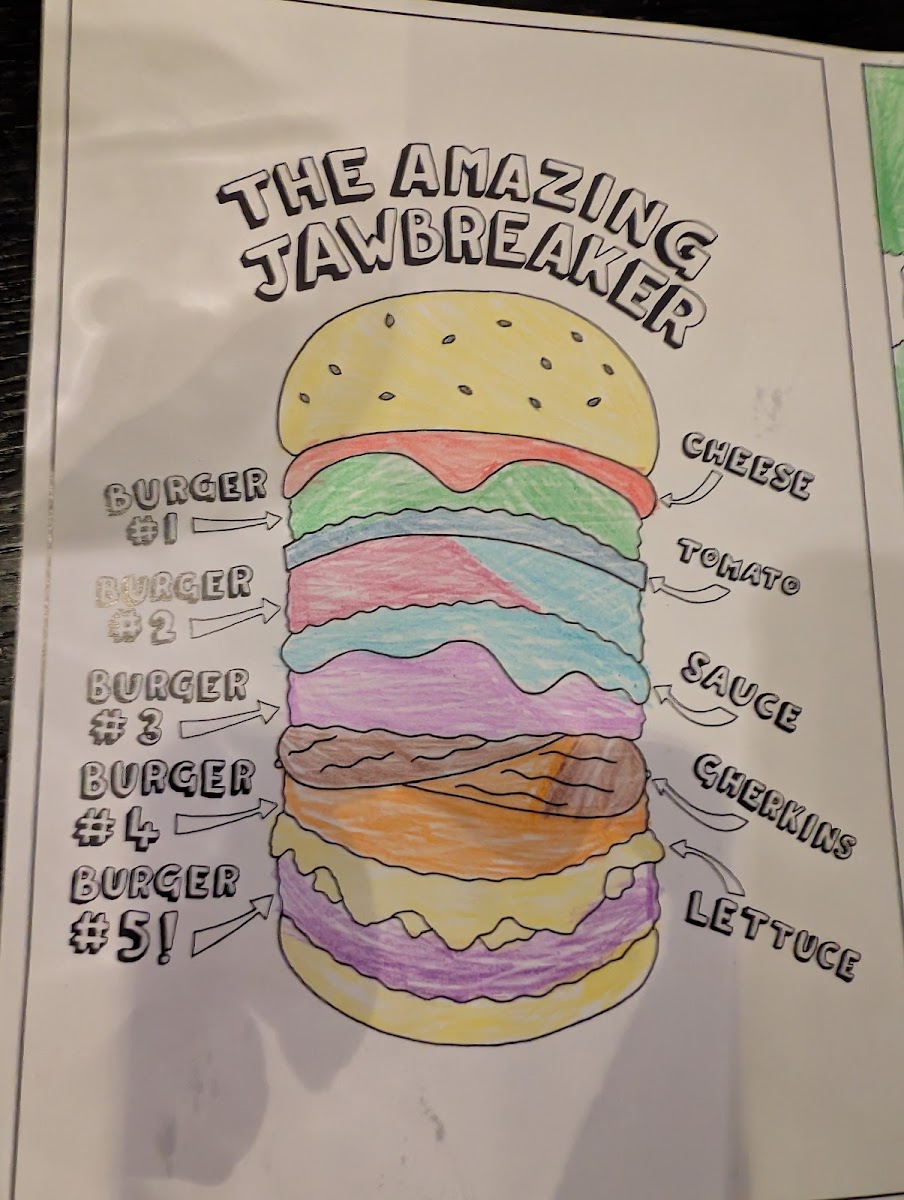 THE AMAZING
JAWBREAKER
BURGER
#1
BURGER
#2
BURGER
#3
BURGER
#4
BURGER
#5!
CHEESE
TOMATO
SAUCE
GHERKINS
LETTUCE